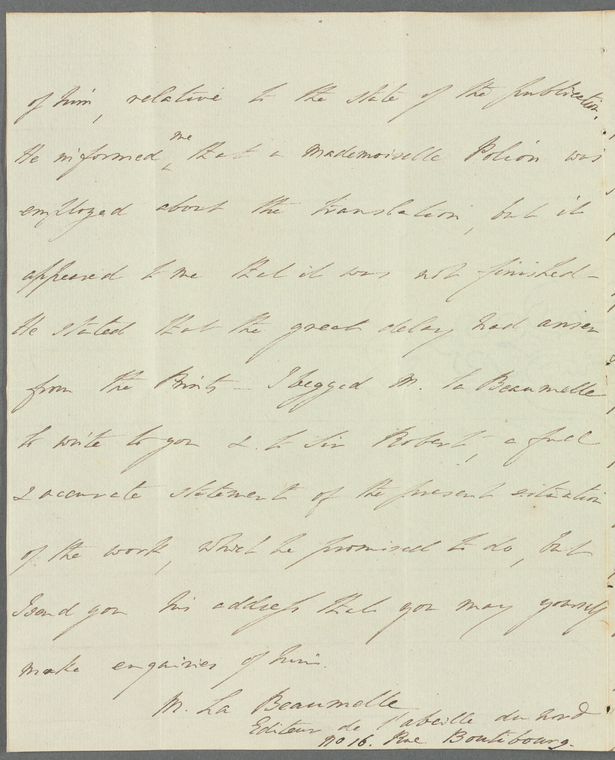 of him, relative to the state of the publication,
He informed me that a Mademoiselle Polion was
employed about the translation, but it
appeared to me that it was not finished -
He stated that the great delay had arisen
from the Prints - I begged M. La Beaumelle
to write to you & to Sir Robert, a full
& accurate statement of the present situation
of the work, which he promised to do, but
I send you his address that you may yourself
make enquiries of him.
M. La Beaumelle
Editeur de l'abeille du nord
No 16. Rue Boutibourg.